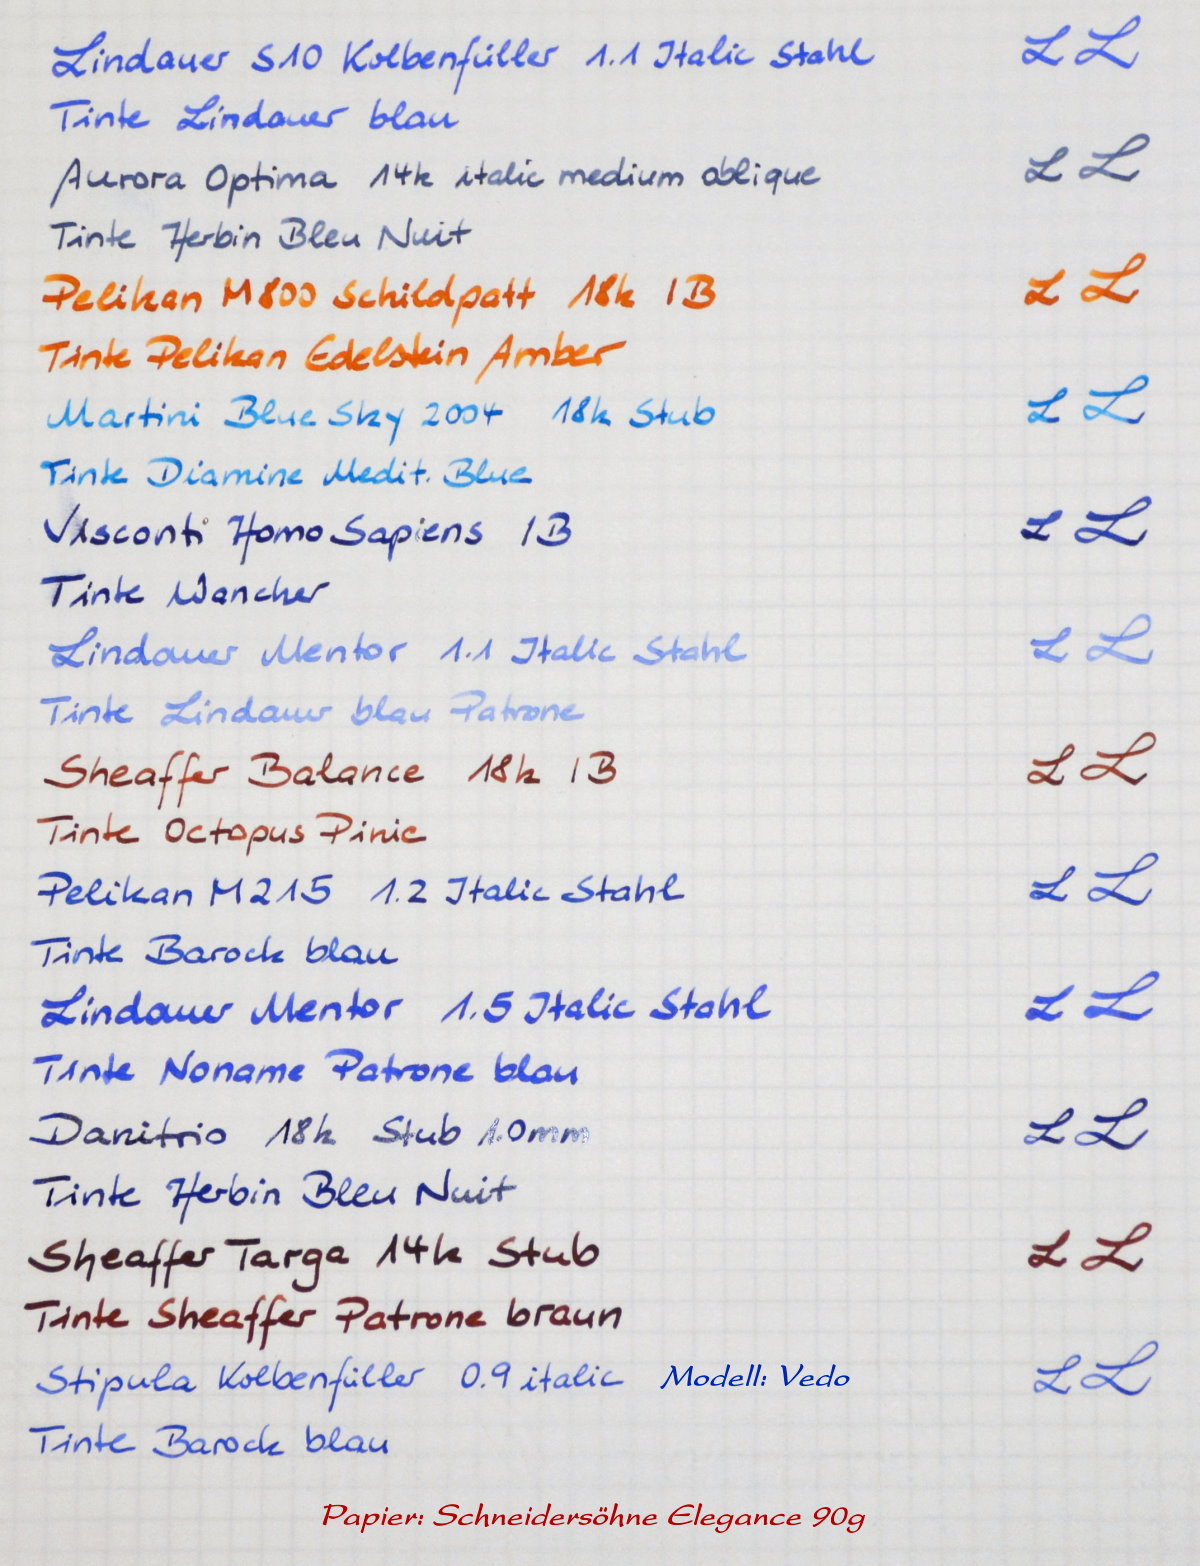 Lindauer S10 Kolbenfüller 1.1 Italic Stahl L L
Tinte Lindauer blau
Aurora Optima 14k italic medium oblique L L
Tinte Herbin Bleu Nuit
Pelikan M800 Schildpatt 18k IB L L
Tinte Pelikan Edelstein Amber
Martini Blue Sky 2004 18k Stub L L
Tinte Diamine Medit. Blue
Visconti Homo Sapiens IB L L
Tinte Wancher
Lindauer Mentor 1.1 Italic Stahl L L
Tinte Lindauer blau Patrone
Sheaffer Balance 18k IB L L
Tinte Octopus Pinie
Pelikan M215 1.2 Italic Stahl L L
Tinte Barock blau
Lindauer Mentor 1.5 Italic Stahl L L
Tinte Noname Patrone blau
Danitrio 18k Stub 1.0mm L L
Tinte Herbin Bleu Nuit
Sheaffer Targa 14k Stub L L
Tinte Sheaffer Patrone braun
Stipula Kolbenfüller 0.9 italic Modell: Vedo L L
Tinte Barock blau
Papier: Schneidersöhne Elegance 90g